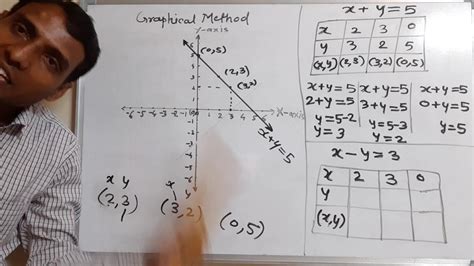 Graphical Method
Y-axis
(0,5)
(2,3)
(3,2)
X-axis
-6 -5 -4 -3 -2 -1 0 1 2 3 4 5 6
x+y=5
x y
(2,3)
x
(3,2)
y
(0,5)
x+y=5
X 2 3 0
Y 3 2 5
(x,y) (2,3) (3,2) (0,5)
x+y=5 x+y=5 x+y=5
2+y=5 3+y=5 0+y=5
y=5-2 y=5-3 y=5
y=3 y=2
x-y=3
X 2 3 0
Y
(x,y)